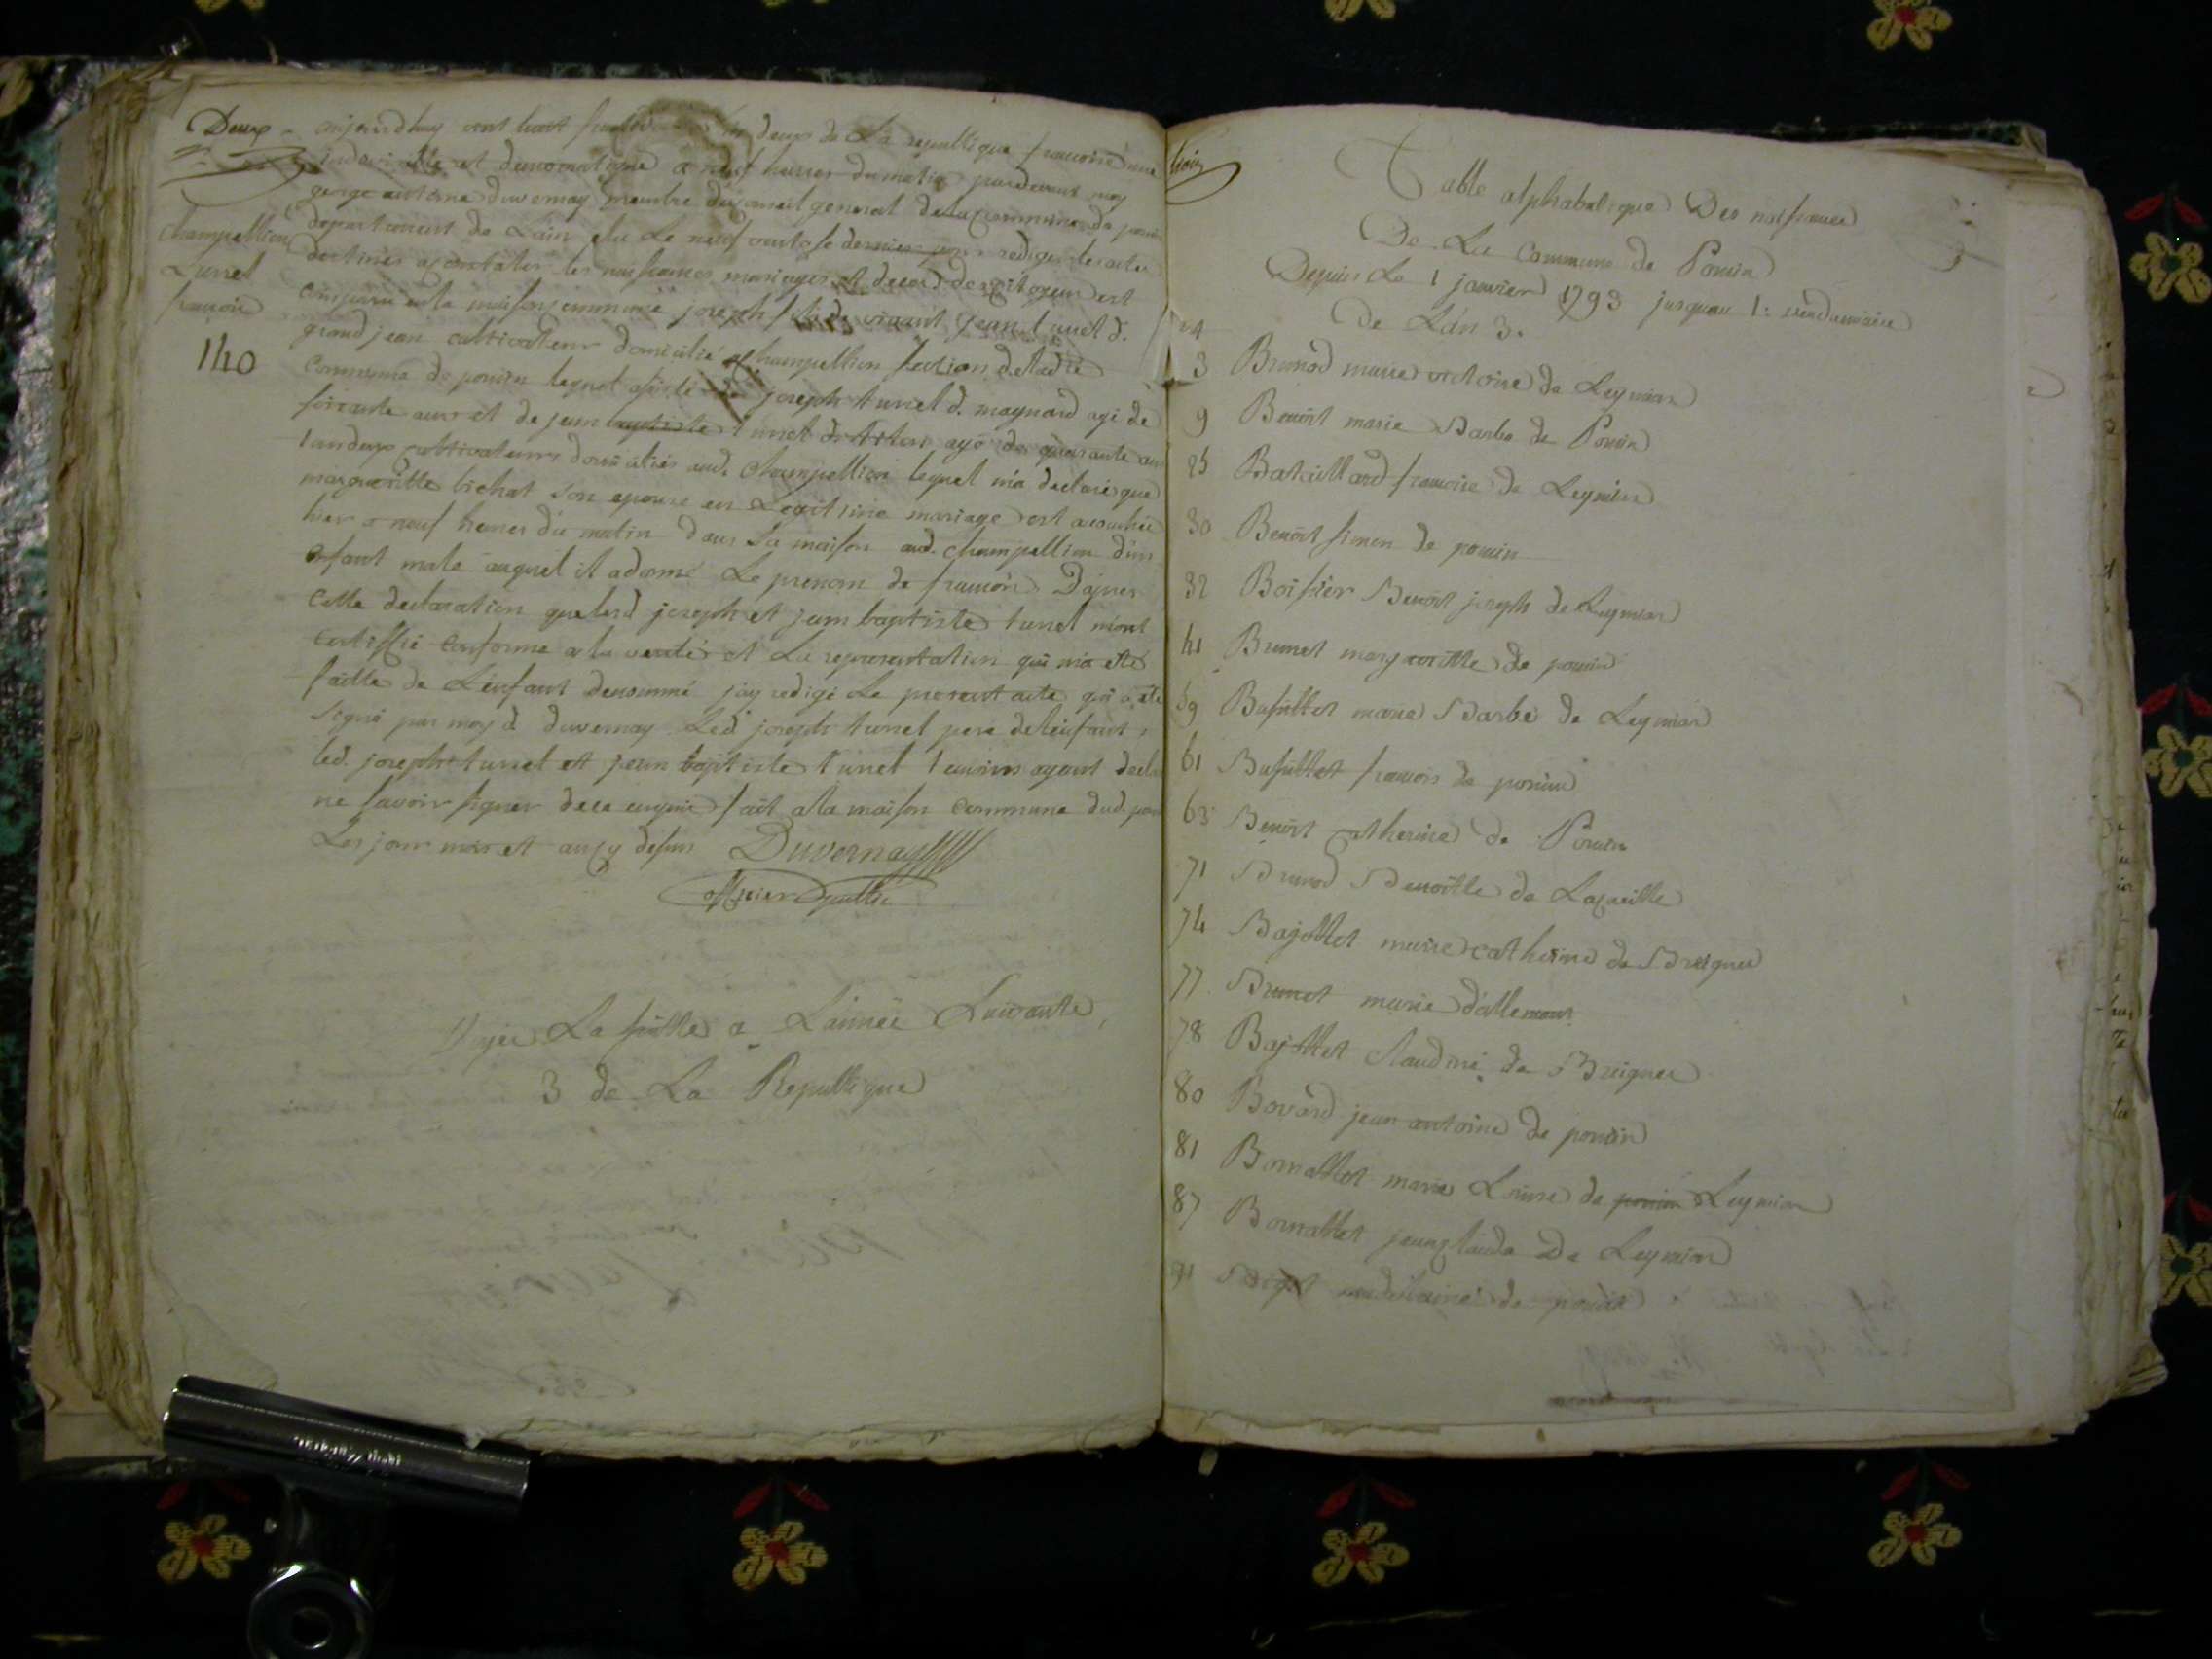 Deux
aujourdhuy vint huit deux de La republique francoise une
indivisible et democratique a neuf heures du matin pardevant moy
george antoine duvernay membre du conseil general de la commune de poncin
departement de Lain elu Le neuf ventose dernier pour rediger les actes
destinés a constater les naissances mariages et deces des citoyens est
comparu en la maison commune joseph fils de vivant jean tunel d.
grand jean cultivateur domicilié a champellion section de ladte
commune de poncin lequel assisté de joseph tunel d. maynard agé de
soixante ans et de jean baptiste tunel agé de quarante ans
tous deux cultivateurs domiciliés aud. Champellion lequel m'a declaré que
margueritte bichat son epouse en Legitime mariage est acouchée
hier a neuf heures du matin dans sa maison aud. champellion d'un
enfant male auquel il a donné Le prenom de francois D'apres
Cette declaration que lesd joseph et jean baptiste tunel m'ont
certiffié conforme a la verité et La representation qui m'a eté
faitte de L'enfant denommé j'ay redigé Le present acte qui a été
signé par moy d duvernay Led joseph tunel pere de l'enfant
led. joseph tunel et jean baptiste tunel temoins ayant
ne savoir signer de ce enquis fait a la maison commune dud.
Les jour mois et an cy dessus Duvernay
officier public
champellion
tunel
francois
140
Voyez La suitte a L'année Suivante,
3 de La Republique
Table alphabetique Des naissances
De La commune de Poncin
Depuis Le 1 janvier 1793 jusquau 1: vendemiaire
De L'an 3.
3 Brunod marie victoire de Leymian
9 Benoit marie Barbe de Poncin
25 Bataillard francoise de Leymian
30 Benoit simon de poncin
32 Boissier Benoit joseph de Leymian
41 Brunet margueritte de poncin
59 Busuttet marie Barbe de Leymian
61 Busuttet francois de poncin
63 Benoit catherine de Poncin
71 Brunod Benoitte de
74 Bajottet marie catherine de Breignes
77 Brunet marie d'allement
78 Bajottet Claudine de Breignes
80 Bovard jean antoine de poncin
81 Bornattet marie Louise de poncin Leymian
87 Bornattet jeanclaude De Leymian
91 madelaine de poncin